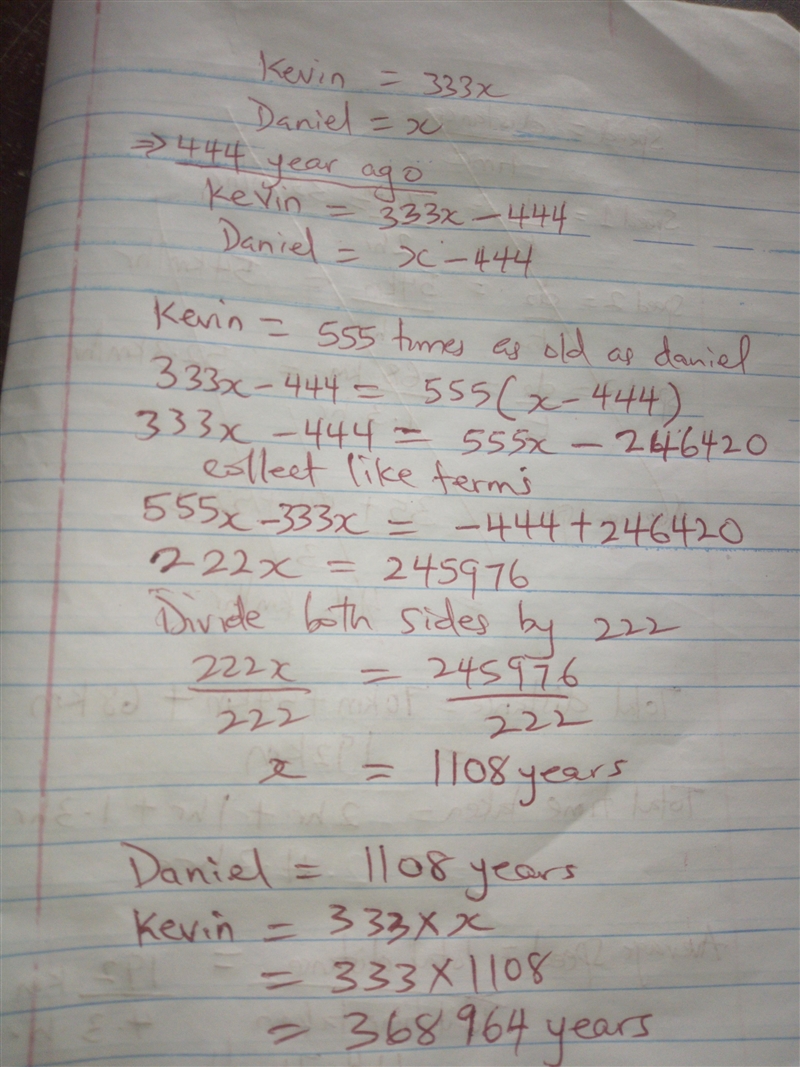 Kevin = 333x
Daniel = x
⇒ 444 year ago
Kevin = 333x - 444
Daniel = x - 444
Kevin = 555 times as old as daniel
333x - 444 = 555(x - 444)
333x - 444 = 555x - 246420
collect like terms
555x - 333x = -444 + 246420
222x = 245976
Divide both sides by 222
222x/222 = 245976/222
x = 1108 years
Daniel = 1108 years
Kevin = 333 × x
= 333 × 1108
= 368964 years